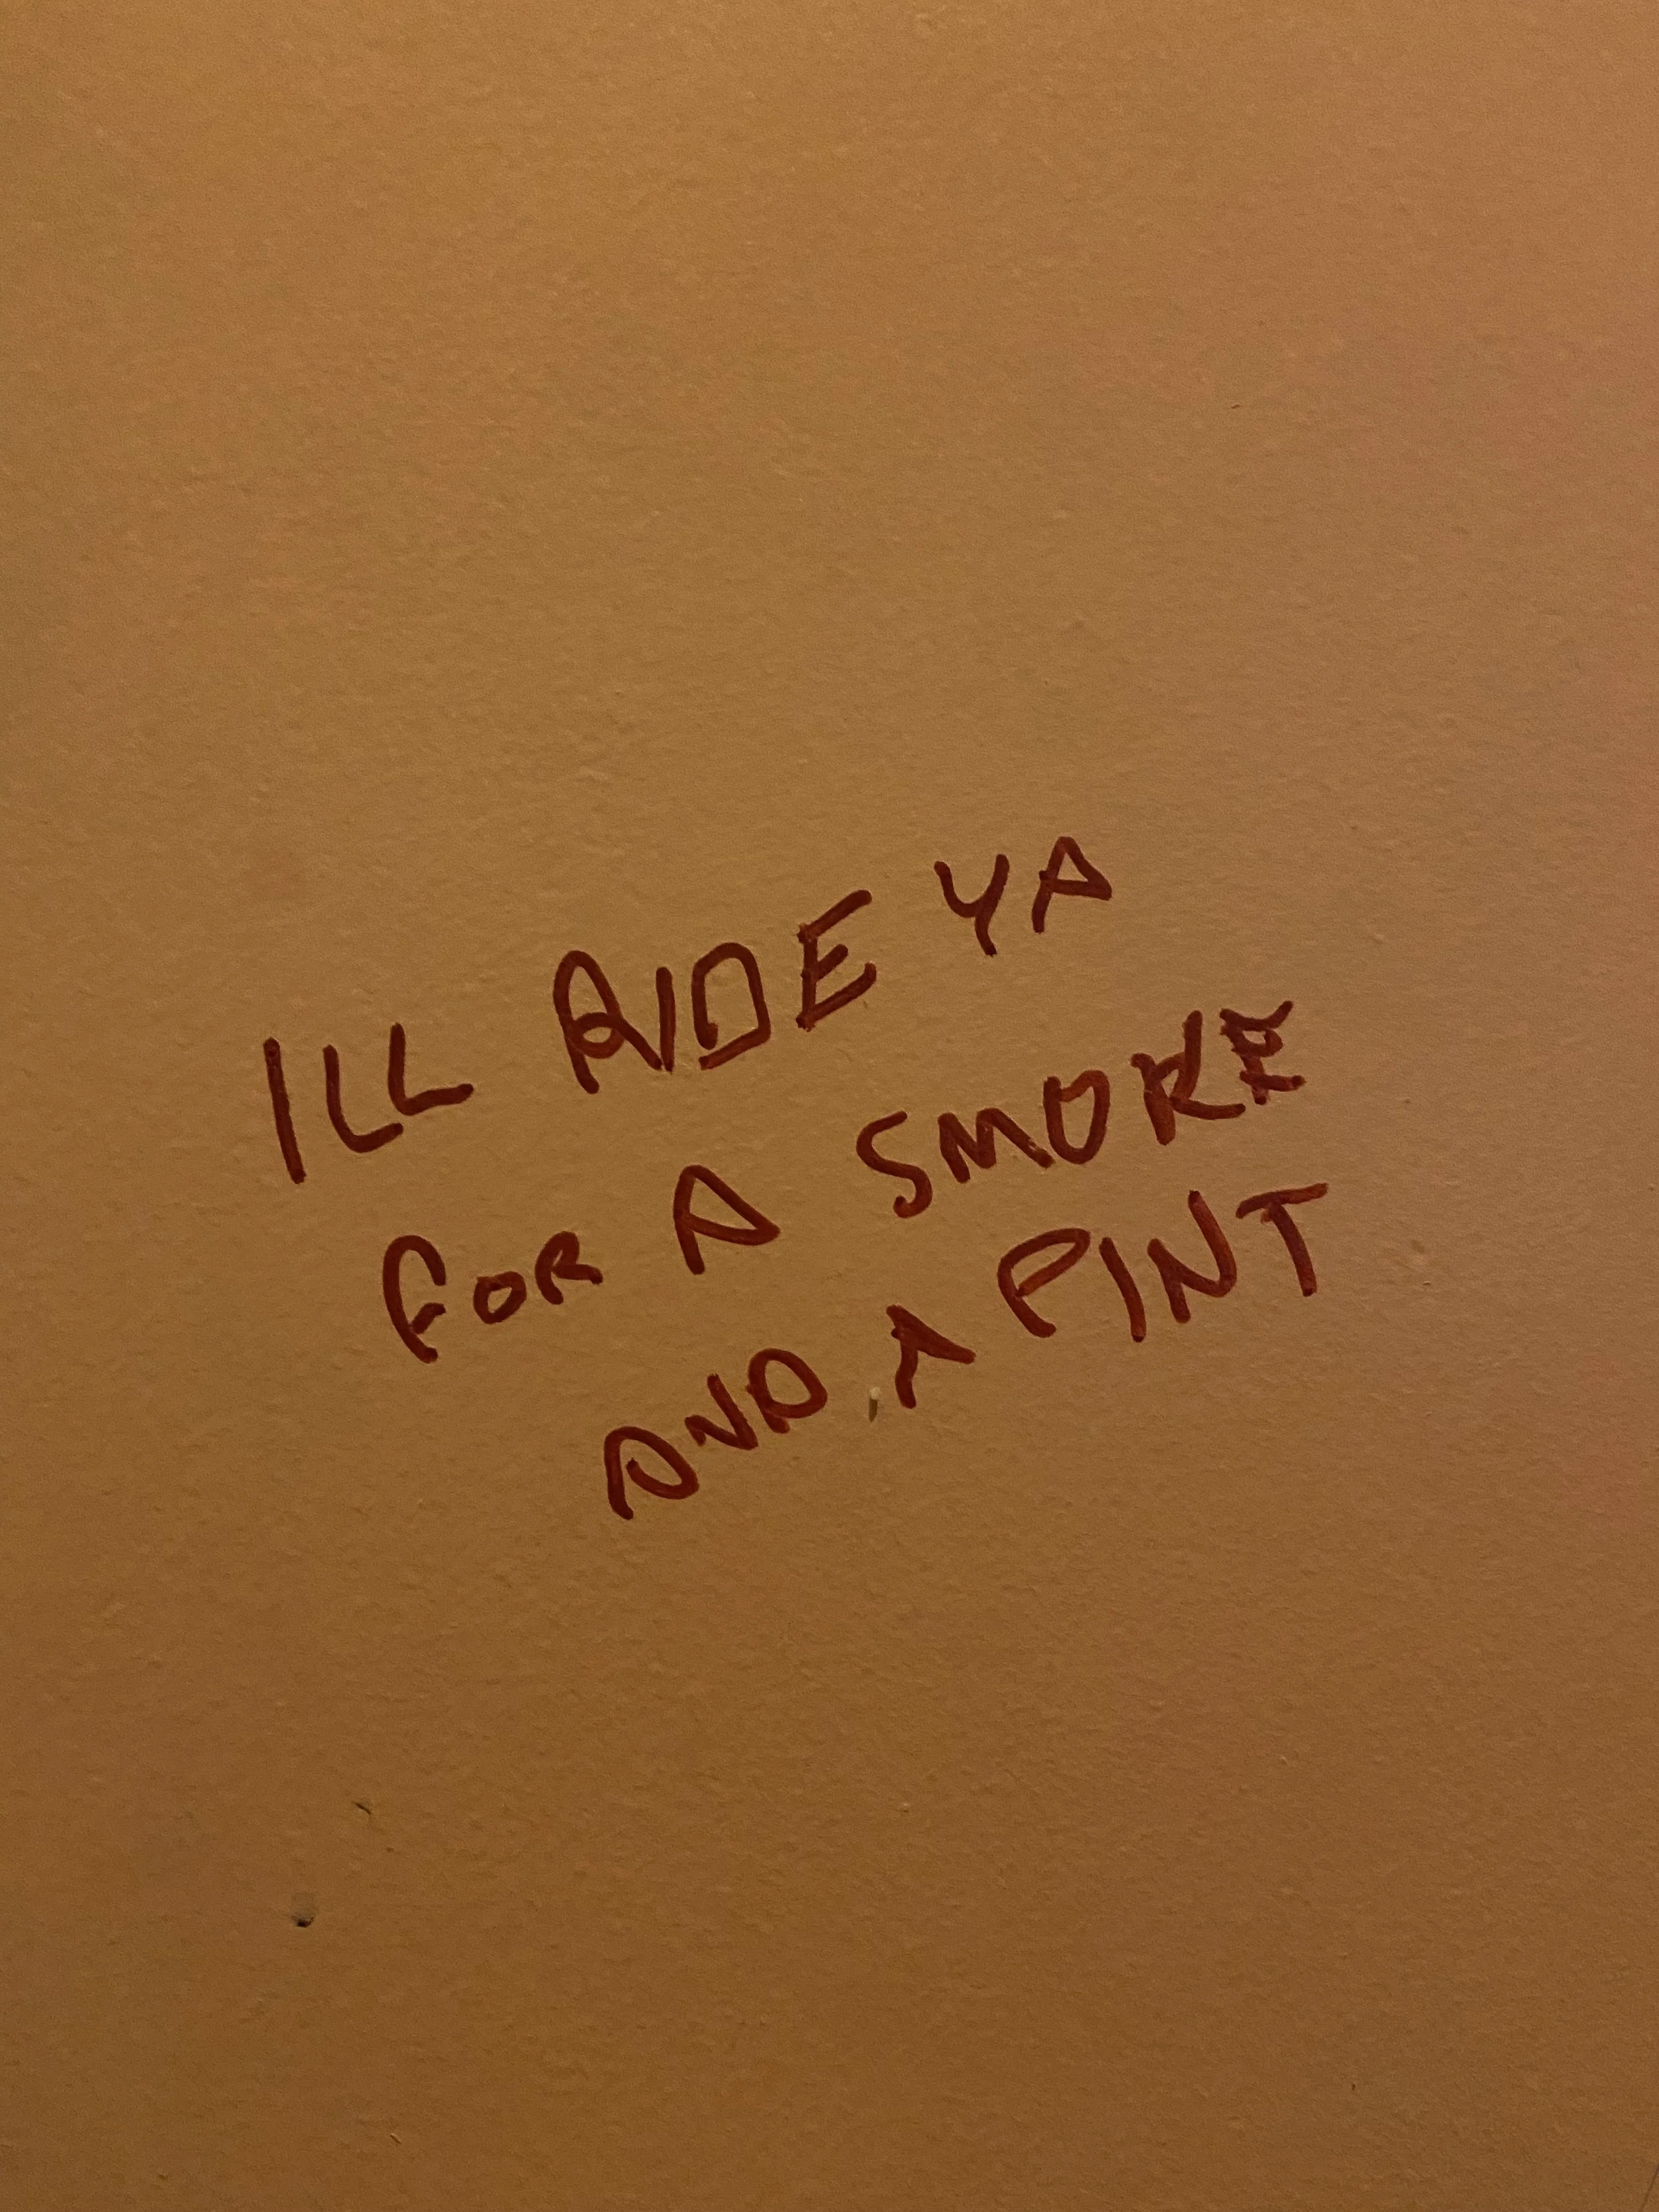 ILL RIDE YA
FOR A SMOKE
AND A PINT